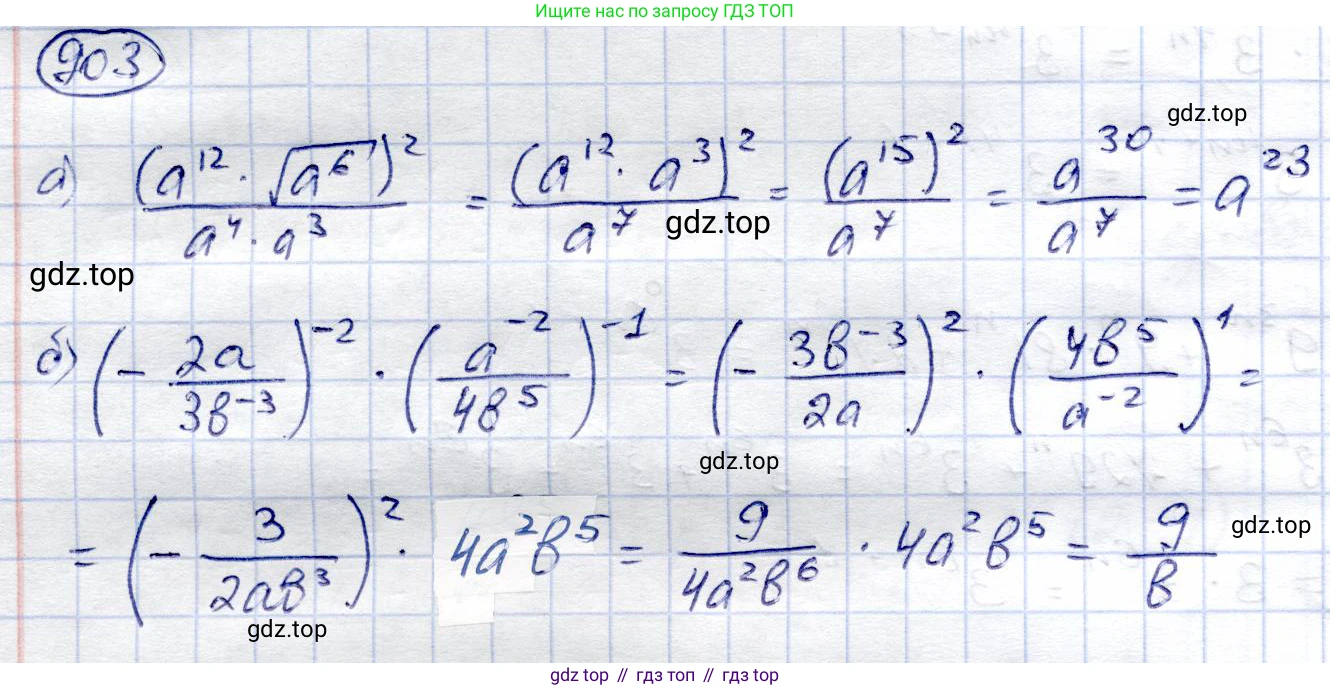 Ищите нас по запросу ГДЗ ТОП
903
gdz.top
а) (a^12 · √(a^6))^2 / (a^4 · a^3) = (a^12 · a^3)^2 / a^7 = (a^15)^2 / a^7 = a^30 / a^7 = a^23
gdz.top
gdz.top
б) (- 2a / 3в^-3)^-2 · (a^-2 / 4в^5)^-1 = (- 3в^-3 / 2a)^2 · (4в^5 / a^-2)^1 =
gdz.top
= (- 3 / 2aв^3)^2 · 4a^2в^5 = 9 / 4a^2в^6 · 4a^2в^5 = 9 / в
gdz.top
gdz.top
gdz top // гдз топ // gdz top